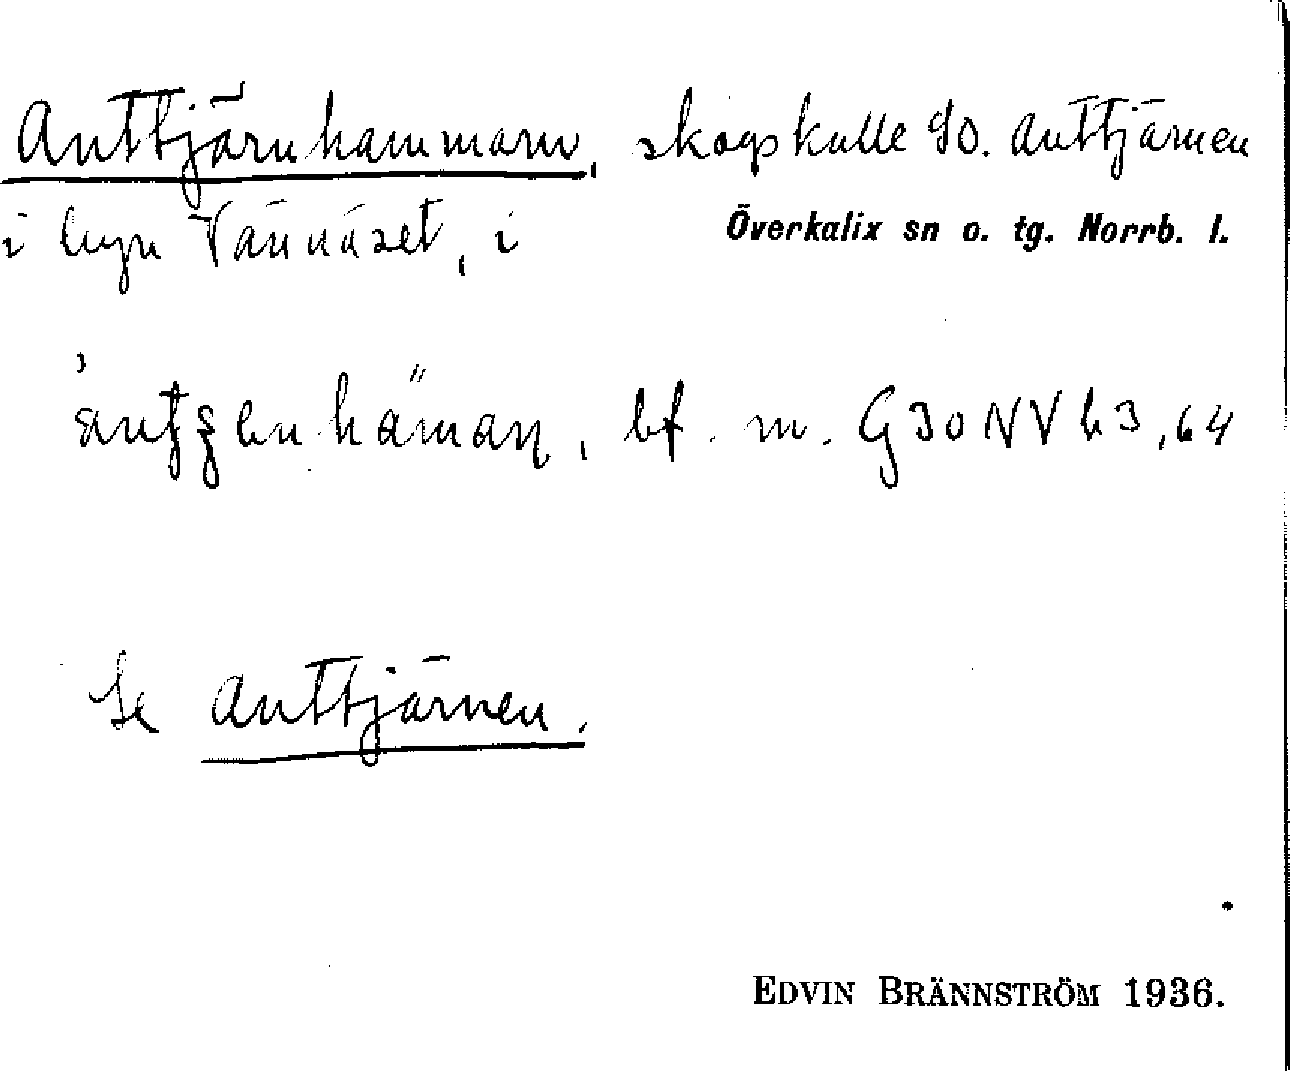 Anttjärnhammarn, skogskulle SO. Anttjärnen
i byn Vännäset, i Överkalix sn o. tg. Norrb. l.
bf. m. G30NVh3,64
Se Anttjärnen.
EDVIN BRÄNNSTRÖM 1936.